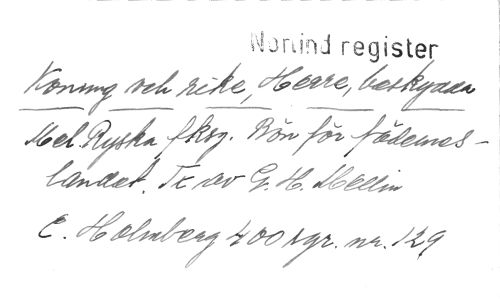 Norlind register
Konung och rike, Herre, beskydda
Mel. Ryska fksg. Bön för fädernes-
landet. Tx av G. H. Mellin
E. Holmberg 400 sgr. nr. 129